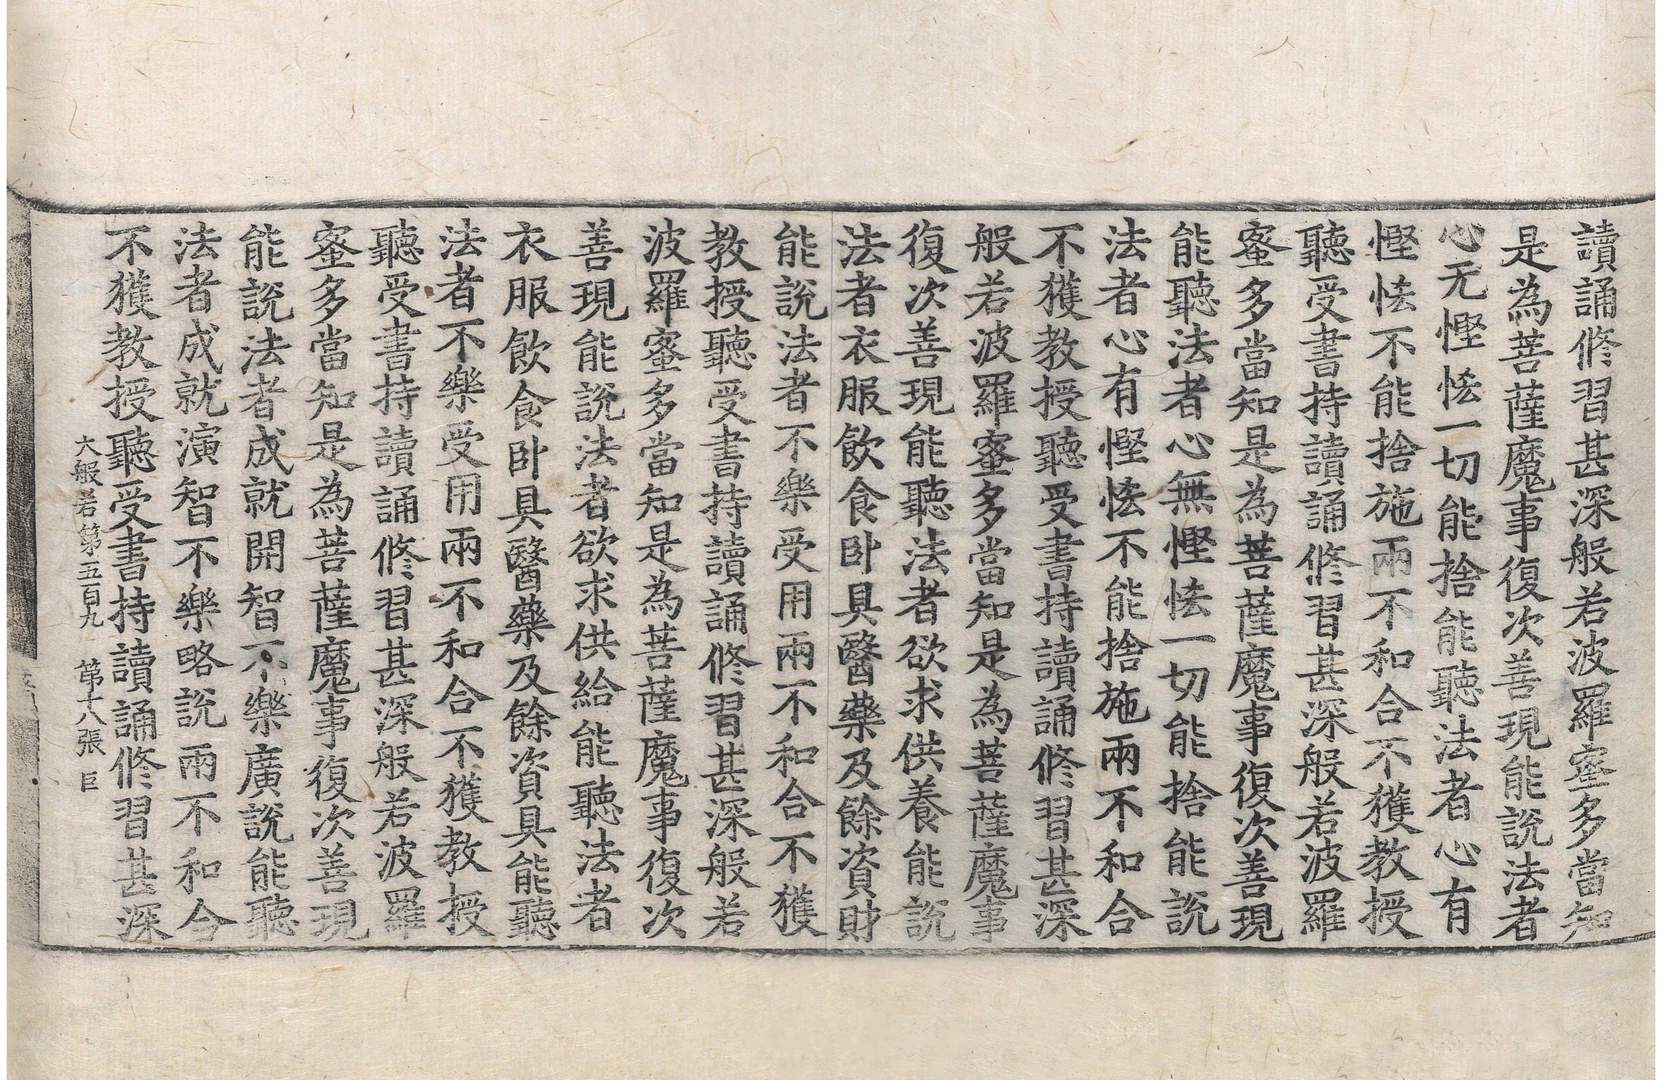 讀誦修習甚深般若波羅蜜多當知
是為菩薩魔事復次善現能說法者
心无慳悋一切能捨能聽法者心有
慳悋不能捨施兩不和合不獲教授
聽受書持讀誦修習甚深般若波羅
蜜多當知是為菩薩魔事復次善現
能聽法者心無慳悋一切能捨能說
法者心有慳悋不能捨施兩不和合
不獲教授聽受書持讀誦修習甚深
般若波羅蜜多當知是為菩薩魔事
復次善現能聽法者欲求供養能說
法者衣服飲食卧具醫藥及餘資財
能說法者不樂受用兩不和合不獲
教授聽受書持讀誦修習甚深般若
波羅蜜多當知是為菩薩魔事復次
善現能說法者欲求供給能聽法者
衣服飲食卧具醫藥及餘資具能聽
法者不樂受用兩不和合不獲教授
聽受書持讀誦修習甚深般若波羅
蜜多當知是為菩薩魔事復次善現
能說法者成就開智不樂廣說能聽
法者成就演智不樂略說兩不和合
不獲教授聽受書持讀誦修習甚深
大般若第五百九 第十八張 巨